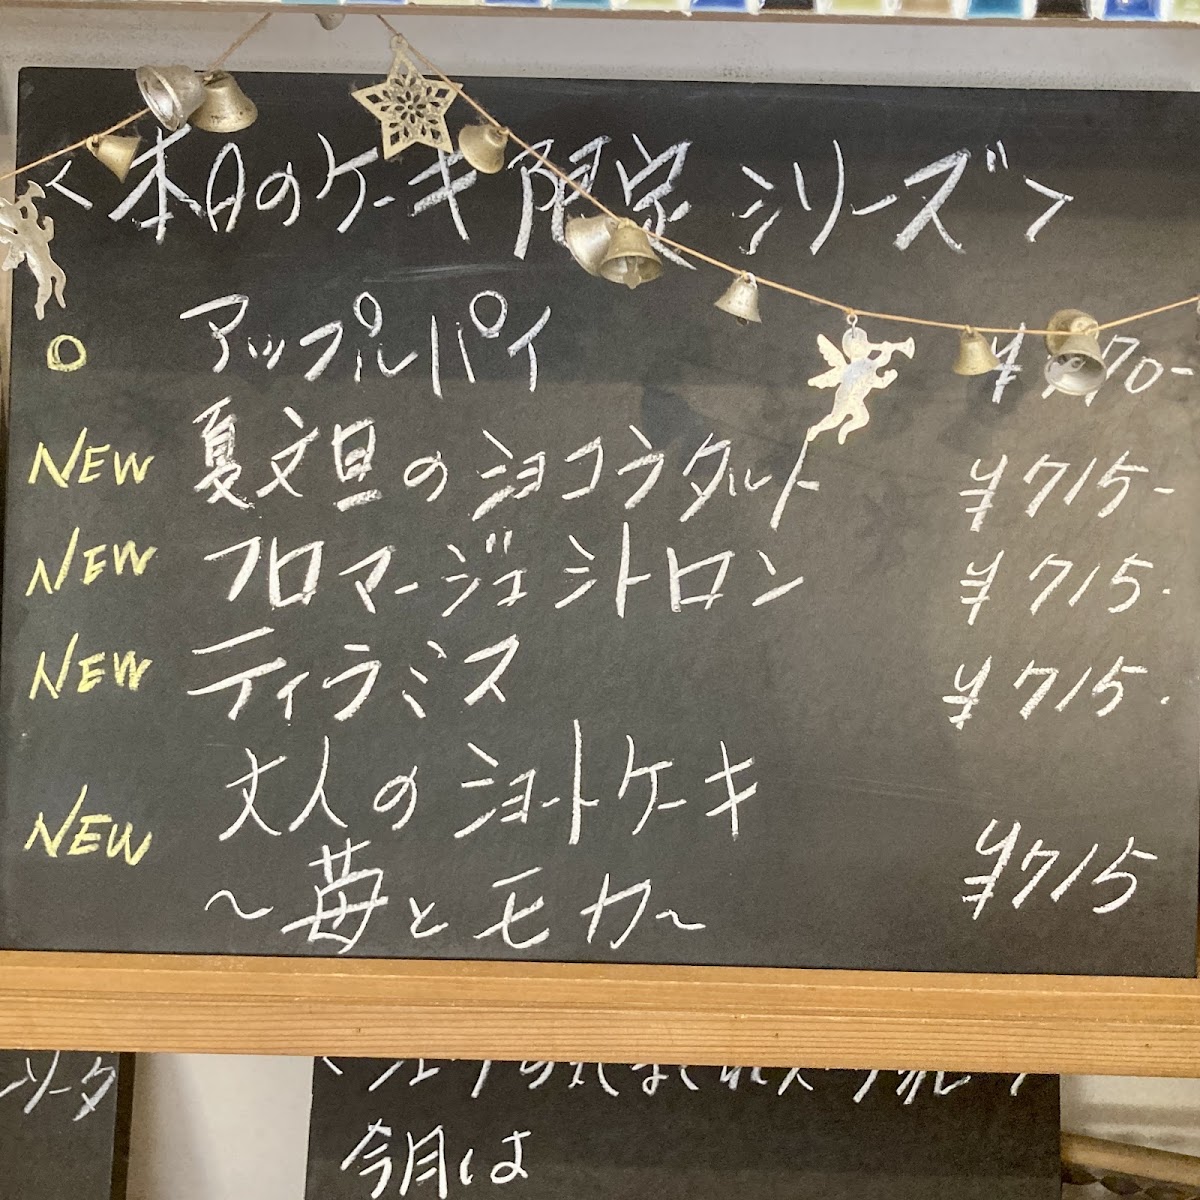 <本日のケーキ限定シリーズ>
○ アップルパイ
NEW 夏文旦のショコラタルト ¥715-
NEW フロマージュシトロン ¥715.
NEW ティラミス ¥715.
NEW 大人のショートケーキ ¥715
～苺とモカ～
今月は